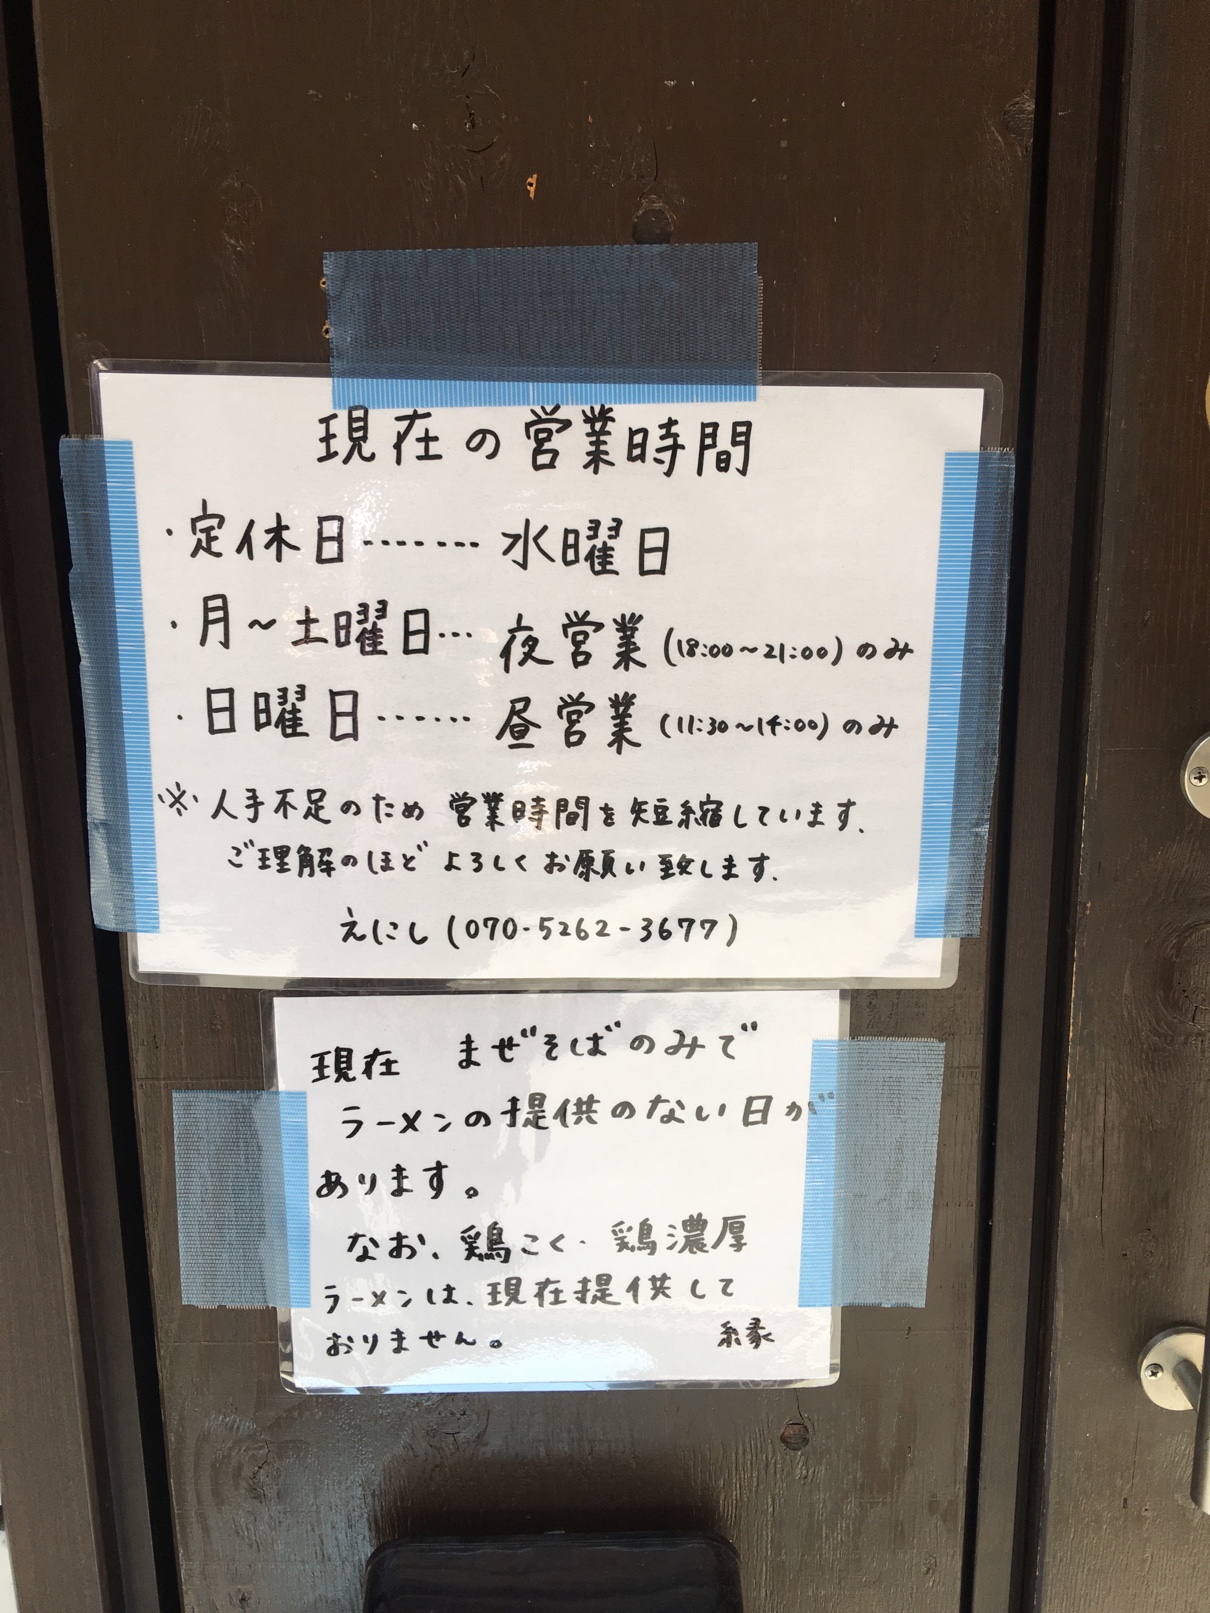 現在の営業時間
・定休日……… 水曜日
・月～土曜日… 夜営業(18:00～21:00)のみ
・日曜日…… 昼営業(11:30～14:00)のみ
※人手不足のため 営業時間を短縮しています.
ご理解のほど よろしくお願い致します.
えにし(070-5262-3677)
現在 まぜそばのみで
ラーメンの提供のない日が
あります。
なお、鶏こく・鶏濃厚
ラーメンは、現在提供して
おりません。 縁